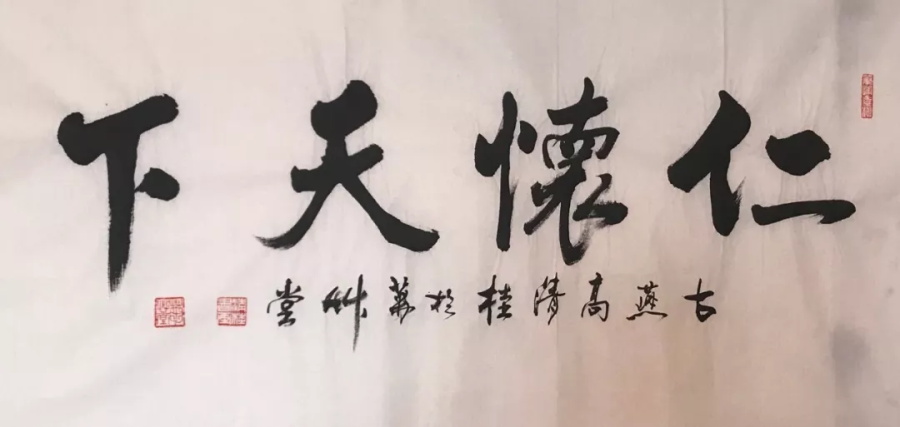 仁懷天下
古燕高清桂於萬竹堂